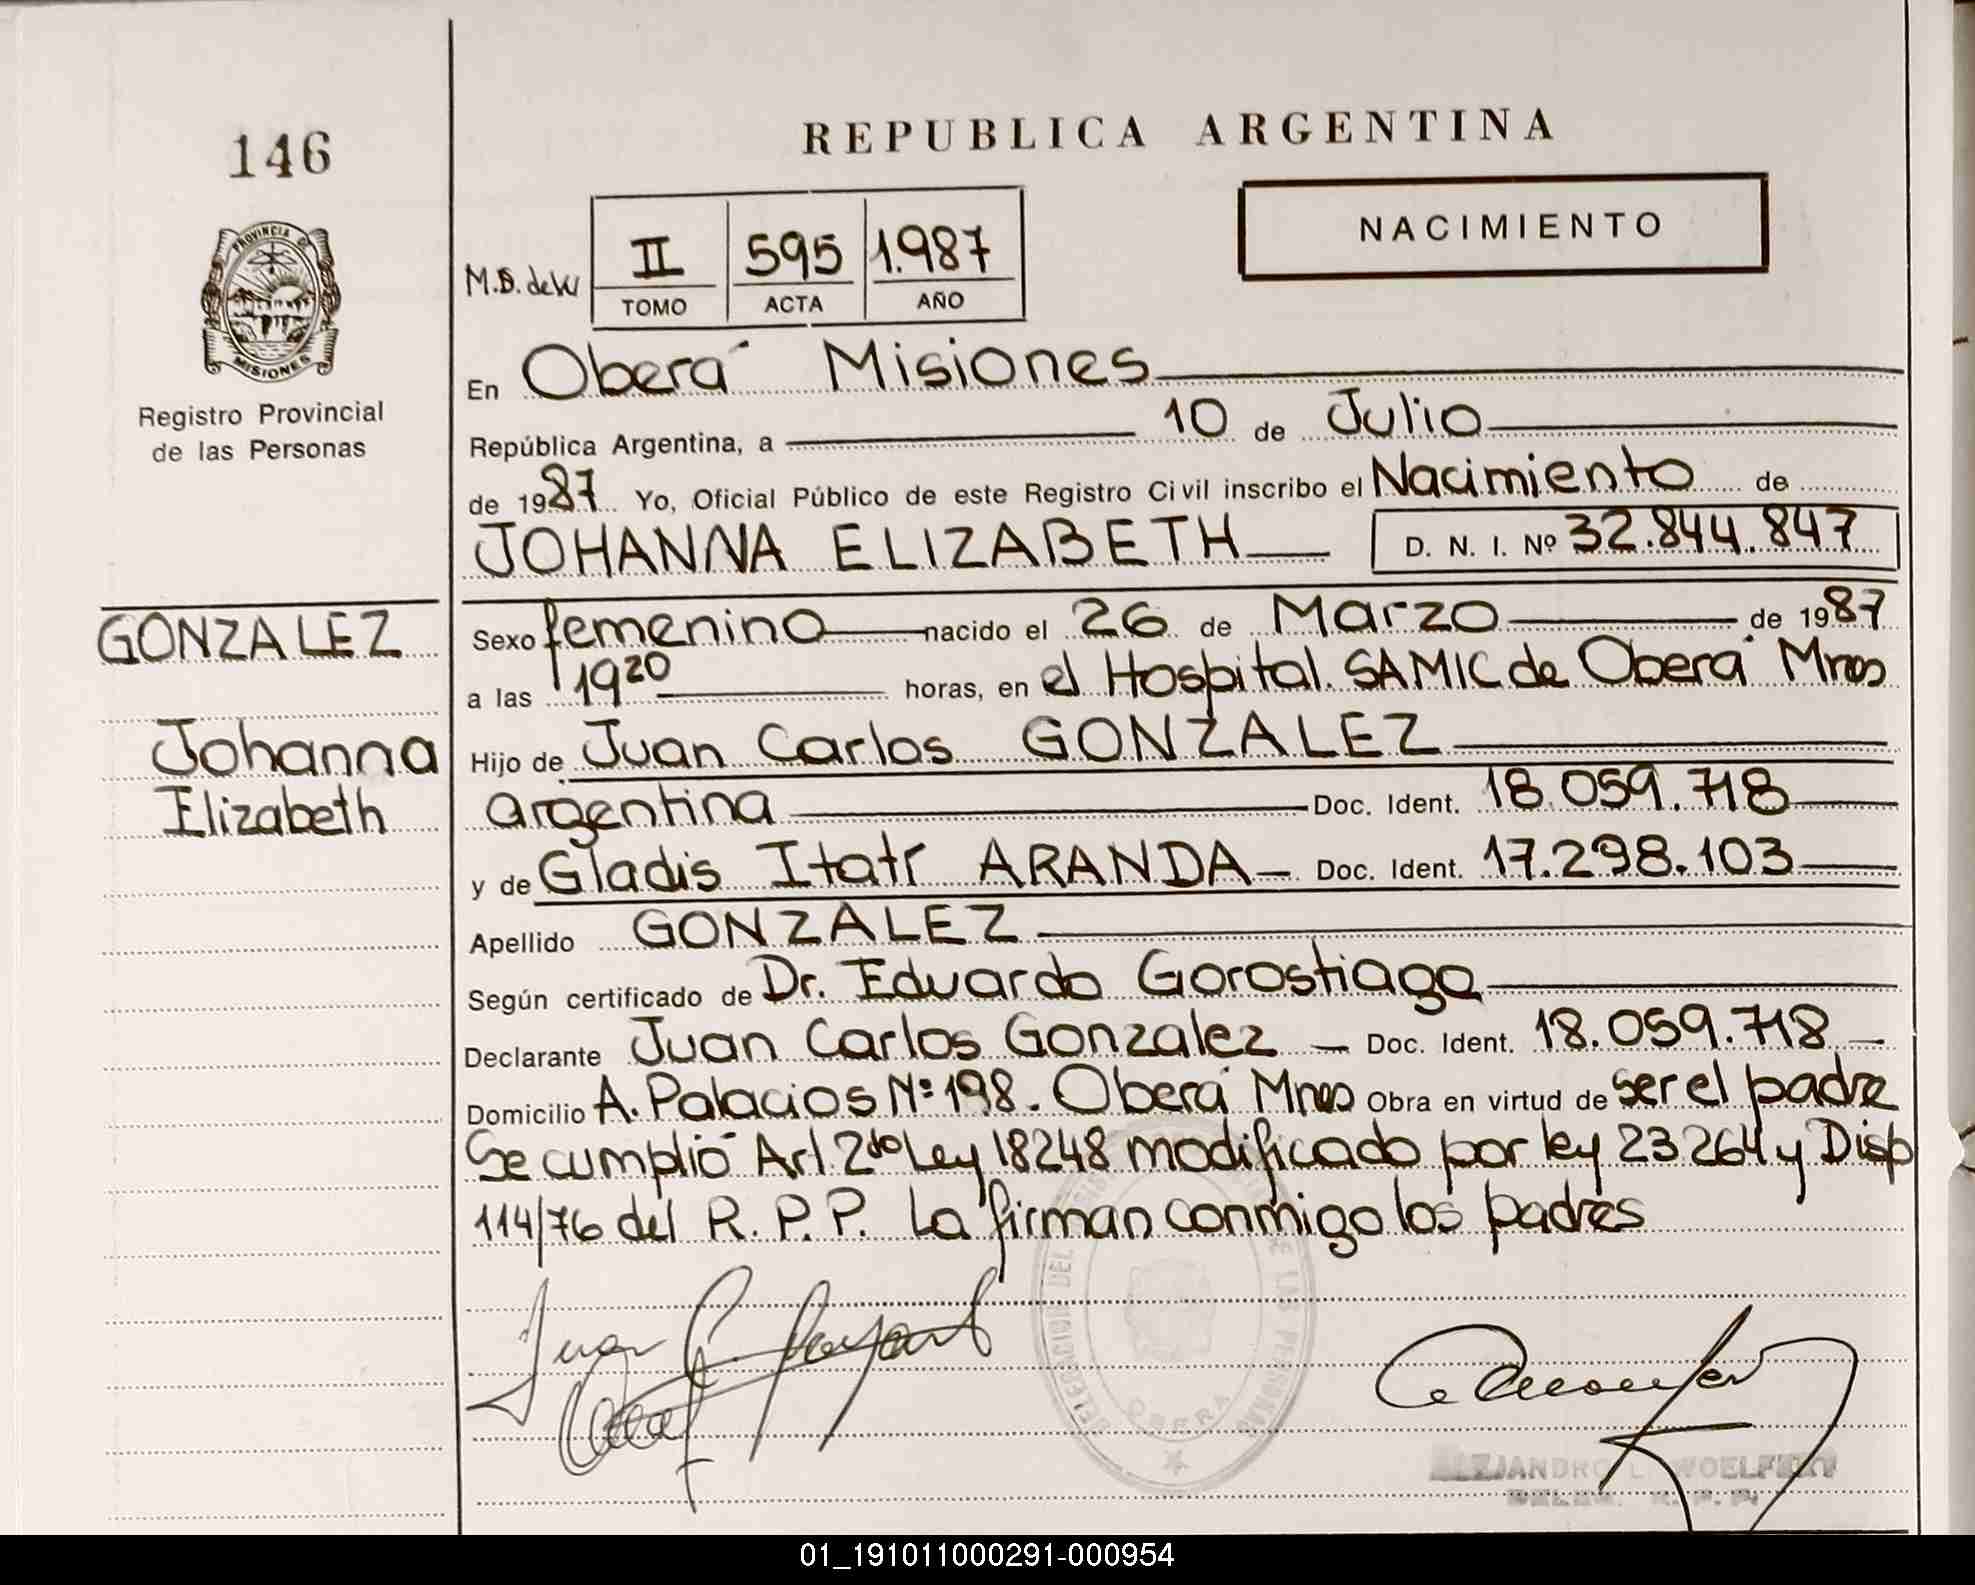 146
REPUBLICA ARGENTINA
NACIMIENTO
M.B. de W
II 595 1.987
TOMO ACTA AÑO
PROVINCIA DE
MISIONES
Registro Provincial
de las Personas
En Oberá Misiones
República Argentina, a 10 de Julio
de 1987 Yo, Oficial Público de este Registro Civil inscribo el Nacimiento de
JOHANNA ELIZABETH D. N. I. Nº 32.844.847
GONZALEZ
Johanna
Elizabeth
Sexo femenino nacido el 26 de Marzo de 1987
a las 19 20 horas, en el Hospital SAMIC de Oberá Mnes
Hijo de Juan Carlos GONZALEZ
argentina Doc. Ident. 18.059.718
y de Gladis Itatí ARANDA Doc. Ident. 17.298.103
Apellido GONZALEZ
Según certificado de Dr. Eduardo Gorostiaga
Declarante Juan Carlos Gonzalez Doc. Ident. 18.059.718
Domicilio A. Palacios Nº 198. Oberá Mnes Obra en virtud de ser el padre
Se cumplió Art. 2do Ley 18248 modificado por ley 23264 y Disp
114/76 del R.P.P. La firman conmigo los padres
Juan
DELEGACION DEL
DE LAS PERSONAS
OBERA
01_191011000291-000954